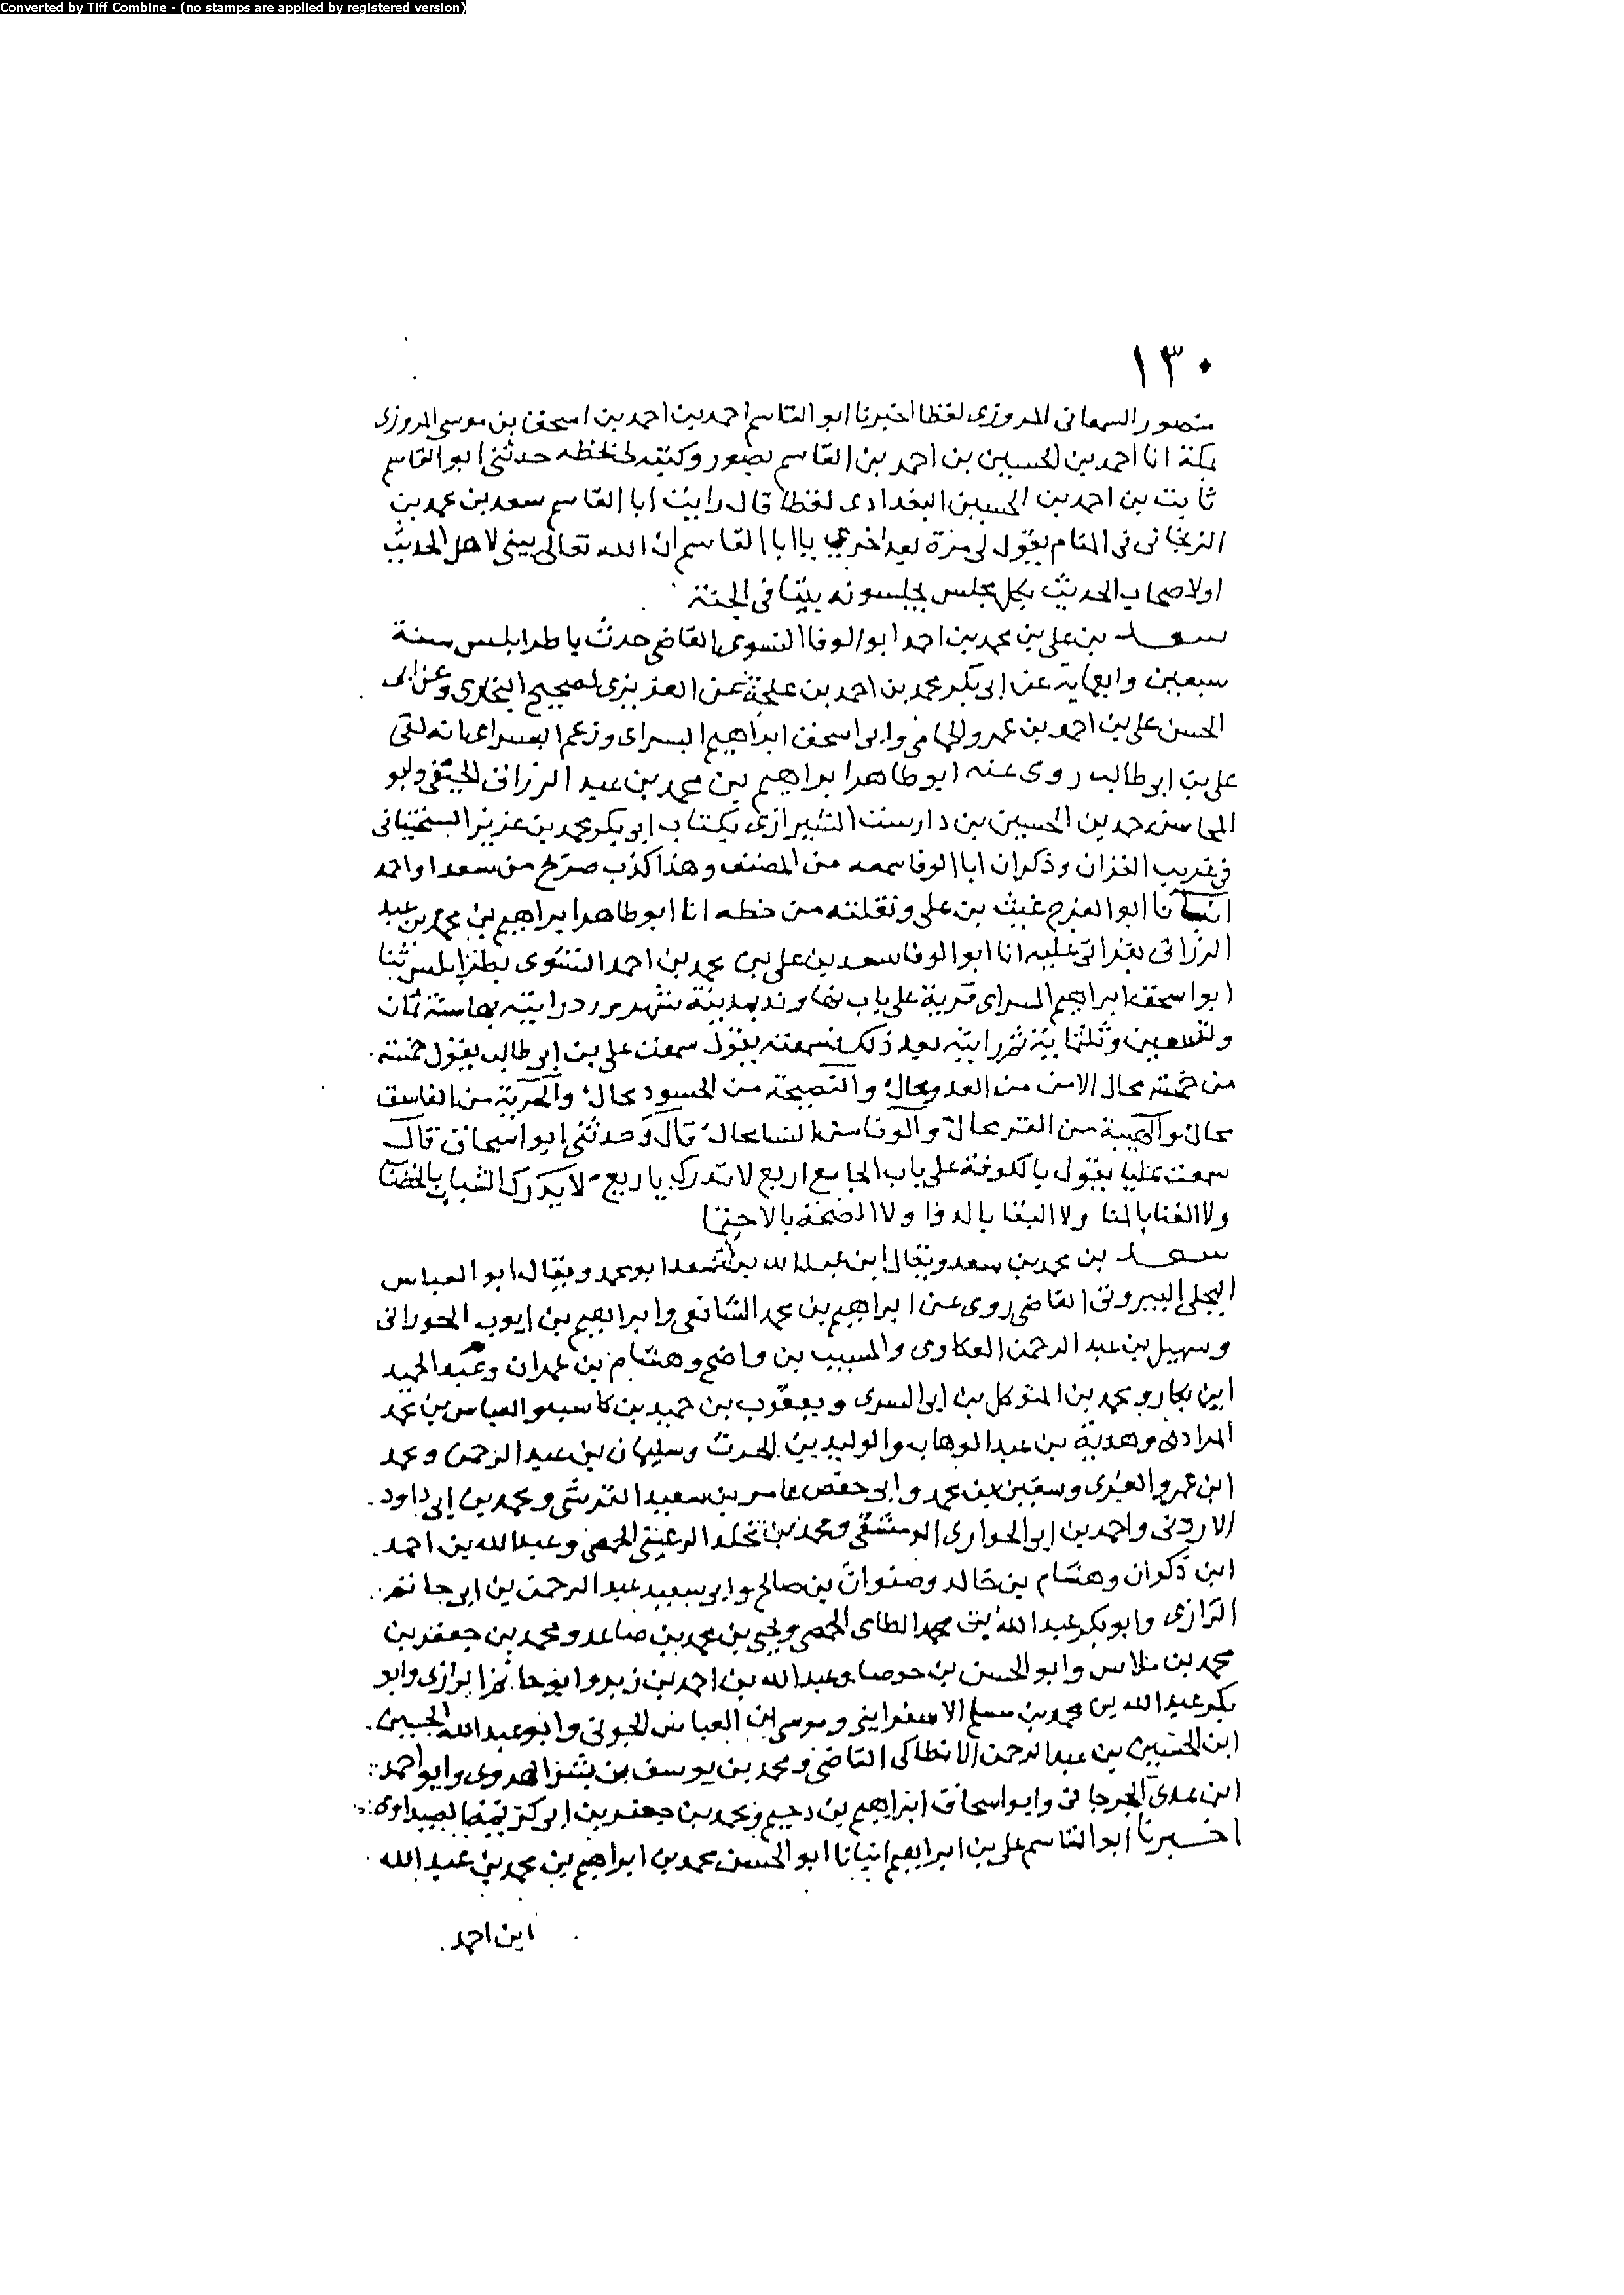 Converted by Tiff Combine - (no stamps are applied by registered version)
١٣٠
منصور السمعانى المروزى لفظا اخبرنا ابو القاسم احمد بن احمد بن اسحق بن موسى المروزى
بمكة انا احمد بن الحسين بن احمد بن القاسم بصور وكتبه لى بخطه حدثنى ابو القاسم
ثابت بن احمد بن الحسين البغدادى لفظا قال رايت ابا القاسم سعد بن محمد بن
الزنجانى فى المنام يقول لى مرة بعد اخرى يا ابا القاسم ان الله تعالى يبنى لاهل الحديث
اولاصحاب الحديث بكل مجلس يجلسونه بيتا فى الجنة
سعد بن على بن محمد بن احمد ابو الوفا النسوى القاضى حدث باطرابلس سنة
سبعين وابعماية عن ابى بكر محمد بن احمد بن على عن العزيزى لصحيح البخارى وعن ابى
الحسن على بن احمد بن عمر والحمامى وابى اسحق ابراهيم السراى وزعم السراى انه لقى
على بن ابى طالب روى عنه ابو طاهر ابراهيم بن محمد بن عبد الرزاق الحيفى وابو
المحاسن حمد بن الحسين بن دارست الشيرازى بكتاب ابى بكر محمد بن عزيز السختيانى
فى غريب القران وذكر ان ابا الوفا سمعه من المصنف وهذا كذب صرح من سعد او احمد
انبانا ابو الفرج غيث بن على ونقلته من خطه انا ابو طاهر ابراهيم بن محمد بن عبد
الرزاق بقراتى عليه انا ابو الوفا سعد بن على بن محمد بن احمد النسوى بطرابلس ثنا
ابو اسحق ابراهيم السراى قرية على باب نهاوند بمدينة شهرورد رايته بها سنة ثمان
وتسعين وثلثماية ثم رايته بعد ذلك فسمعته يقول سمعت على بن ابى طالب يقول خمسة
من خمسة محال الامن من العدو محال والنصيحة من الحسود محال والحرمة من الفاسق
محال والهيبة من الفقر محال والوفا من النسا محال قال وحدثنى ابو اسحاق قال
سمعت عليا يقول بالكوفة على باب الجامع اربع لا تدرك باربع لا يدرك الشباب بالخضاب
ولا الغنا بالمنا ولا البقا بالدوا ولا الصحة بالاحتما
سعد بن محمد بن سعد ويقال ابن عبد الله بن سعد ابو محمد ويقال ابو العباس
البجلى البيروتى القاضى روى عن ابراهيم بن محمد الشافعى وابراهيم بن ايوب الحورانى
وسهيل بن عبد الرحمن العكاوى والمسيب بن واضح وهشام بن عمران وعبد الحميد
ابن بكار ومحمد بن المتوكل بن ابى السرى ويعقوب بن حميد بن كاسب والعباس بن محمد
المرادى وهدية بن عبد الوهاب والوليد بن الحرث وسليمان بن عبد الرحمن ومحمد
ابن عمرو الغزى وسفين بن محمد وابى حفص عامر بن سعيد القرشى ومحمد بن ابى داود
الاردنى واحمد بن ابى الحوارى الدمشقى ومحمد بن مخلد الرعينى الحمصى وعبد الله بن احمد
ابن ذكوان وهشام بن خالد وصفوان بن صالح وابى سعيد عبد الرحمن بن ابى حاتم
الرازى وابو بكر عبد الله بن محمد الطاى الحمصى ويحيى بن محمد بن صاعد ومحمد بن جعفر بن
محمد بن ملاس وابو الحسن بن حوصا وعبد الله بن احمد بن زبر وابو حاتم الرازى وابو
بكر عبد الله بن محمد بن مسلم الاسفراينى وموسى بن العباس الجوينى وابو عبد الله الحسين
ابن الحسين بن عبد الرحمن الانطاكى القاضى ومحمد بن يوسف بن بشر الهروى وابو احمد
ابن عدى الجرجانى وابو اسحاق ابراهيم بن دحيم ومحمد بن جعفر بن ابى كريمة الصيداوى
اخبرنا ابو القاسم على بن ابراهيم انبانا ابو الحسن محمد بن ابراهيم بن محمد بن عبد الله
ابن احمد